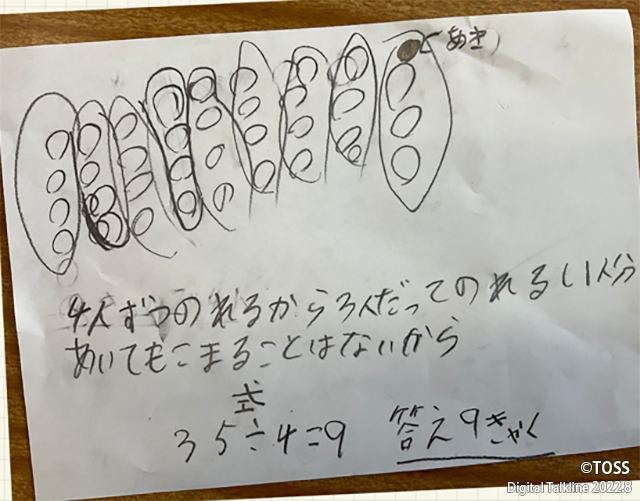 (あき)
4人ずつのれるから3人だってのれるし1人分
あいてもこまることはないから
式
35÷4=9 答え9きゃく
©TOSS
Digital Talkline 2022.8